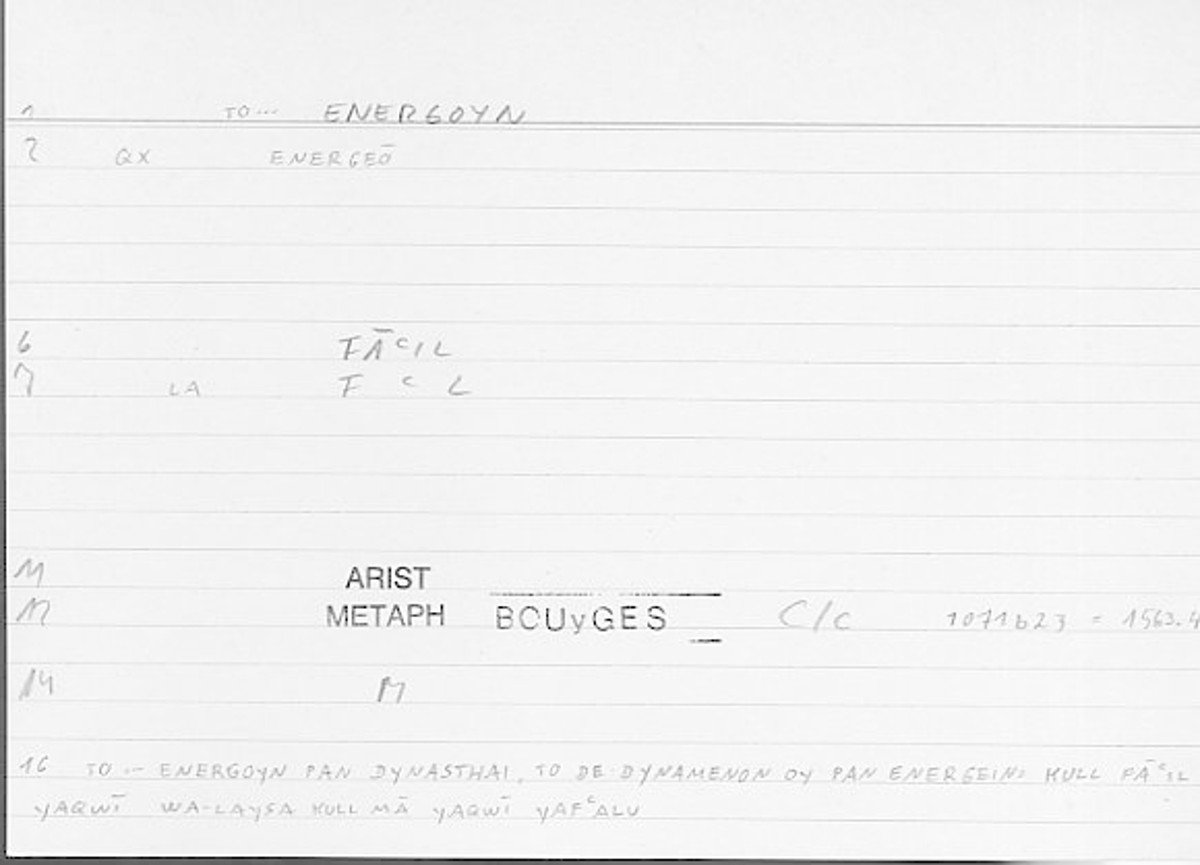 1 TO... ENERGOYN
2 QX ENERGEŌ
6 FĀcIL
7 LA F c L
11 ARIST
12 METAPH BOUyGES C/c 1071b23 = 1563.4
14 M
16 TO ... ENERGOYN PAN DYNASTHAI, TO DE DYNAMENON OY PAN ENERGEIN: KULL FĀcIL
yAQWĪ WA-LAySA KULL MĀ yAQWĪ yAFcALU